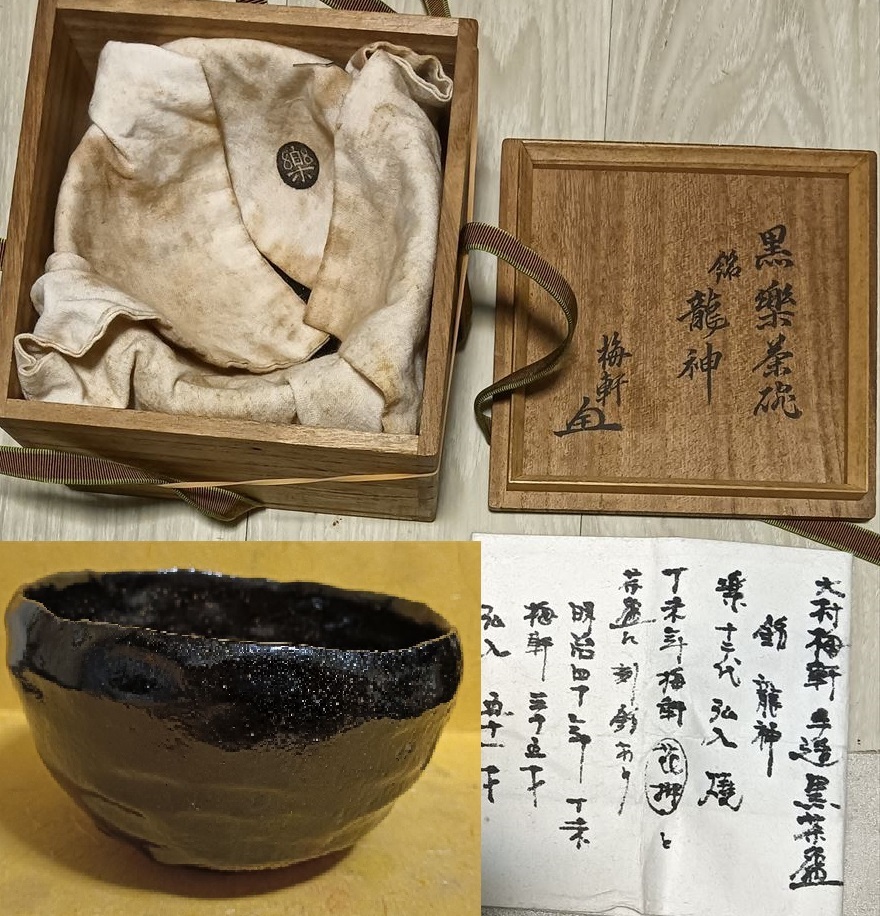 樂
黒樂茶碗
銘
龍神
梅軒
大村梅軒 手造 黒茶盌
銘 龍神
樂十二代 弘入 焼
丁未年 梅軒 花押 と
茶盌に 刻銘あり
明治四十年 丁未
梅軒 三十五才
弘入 五十一才